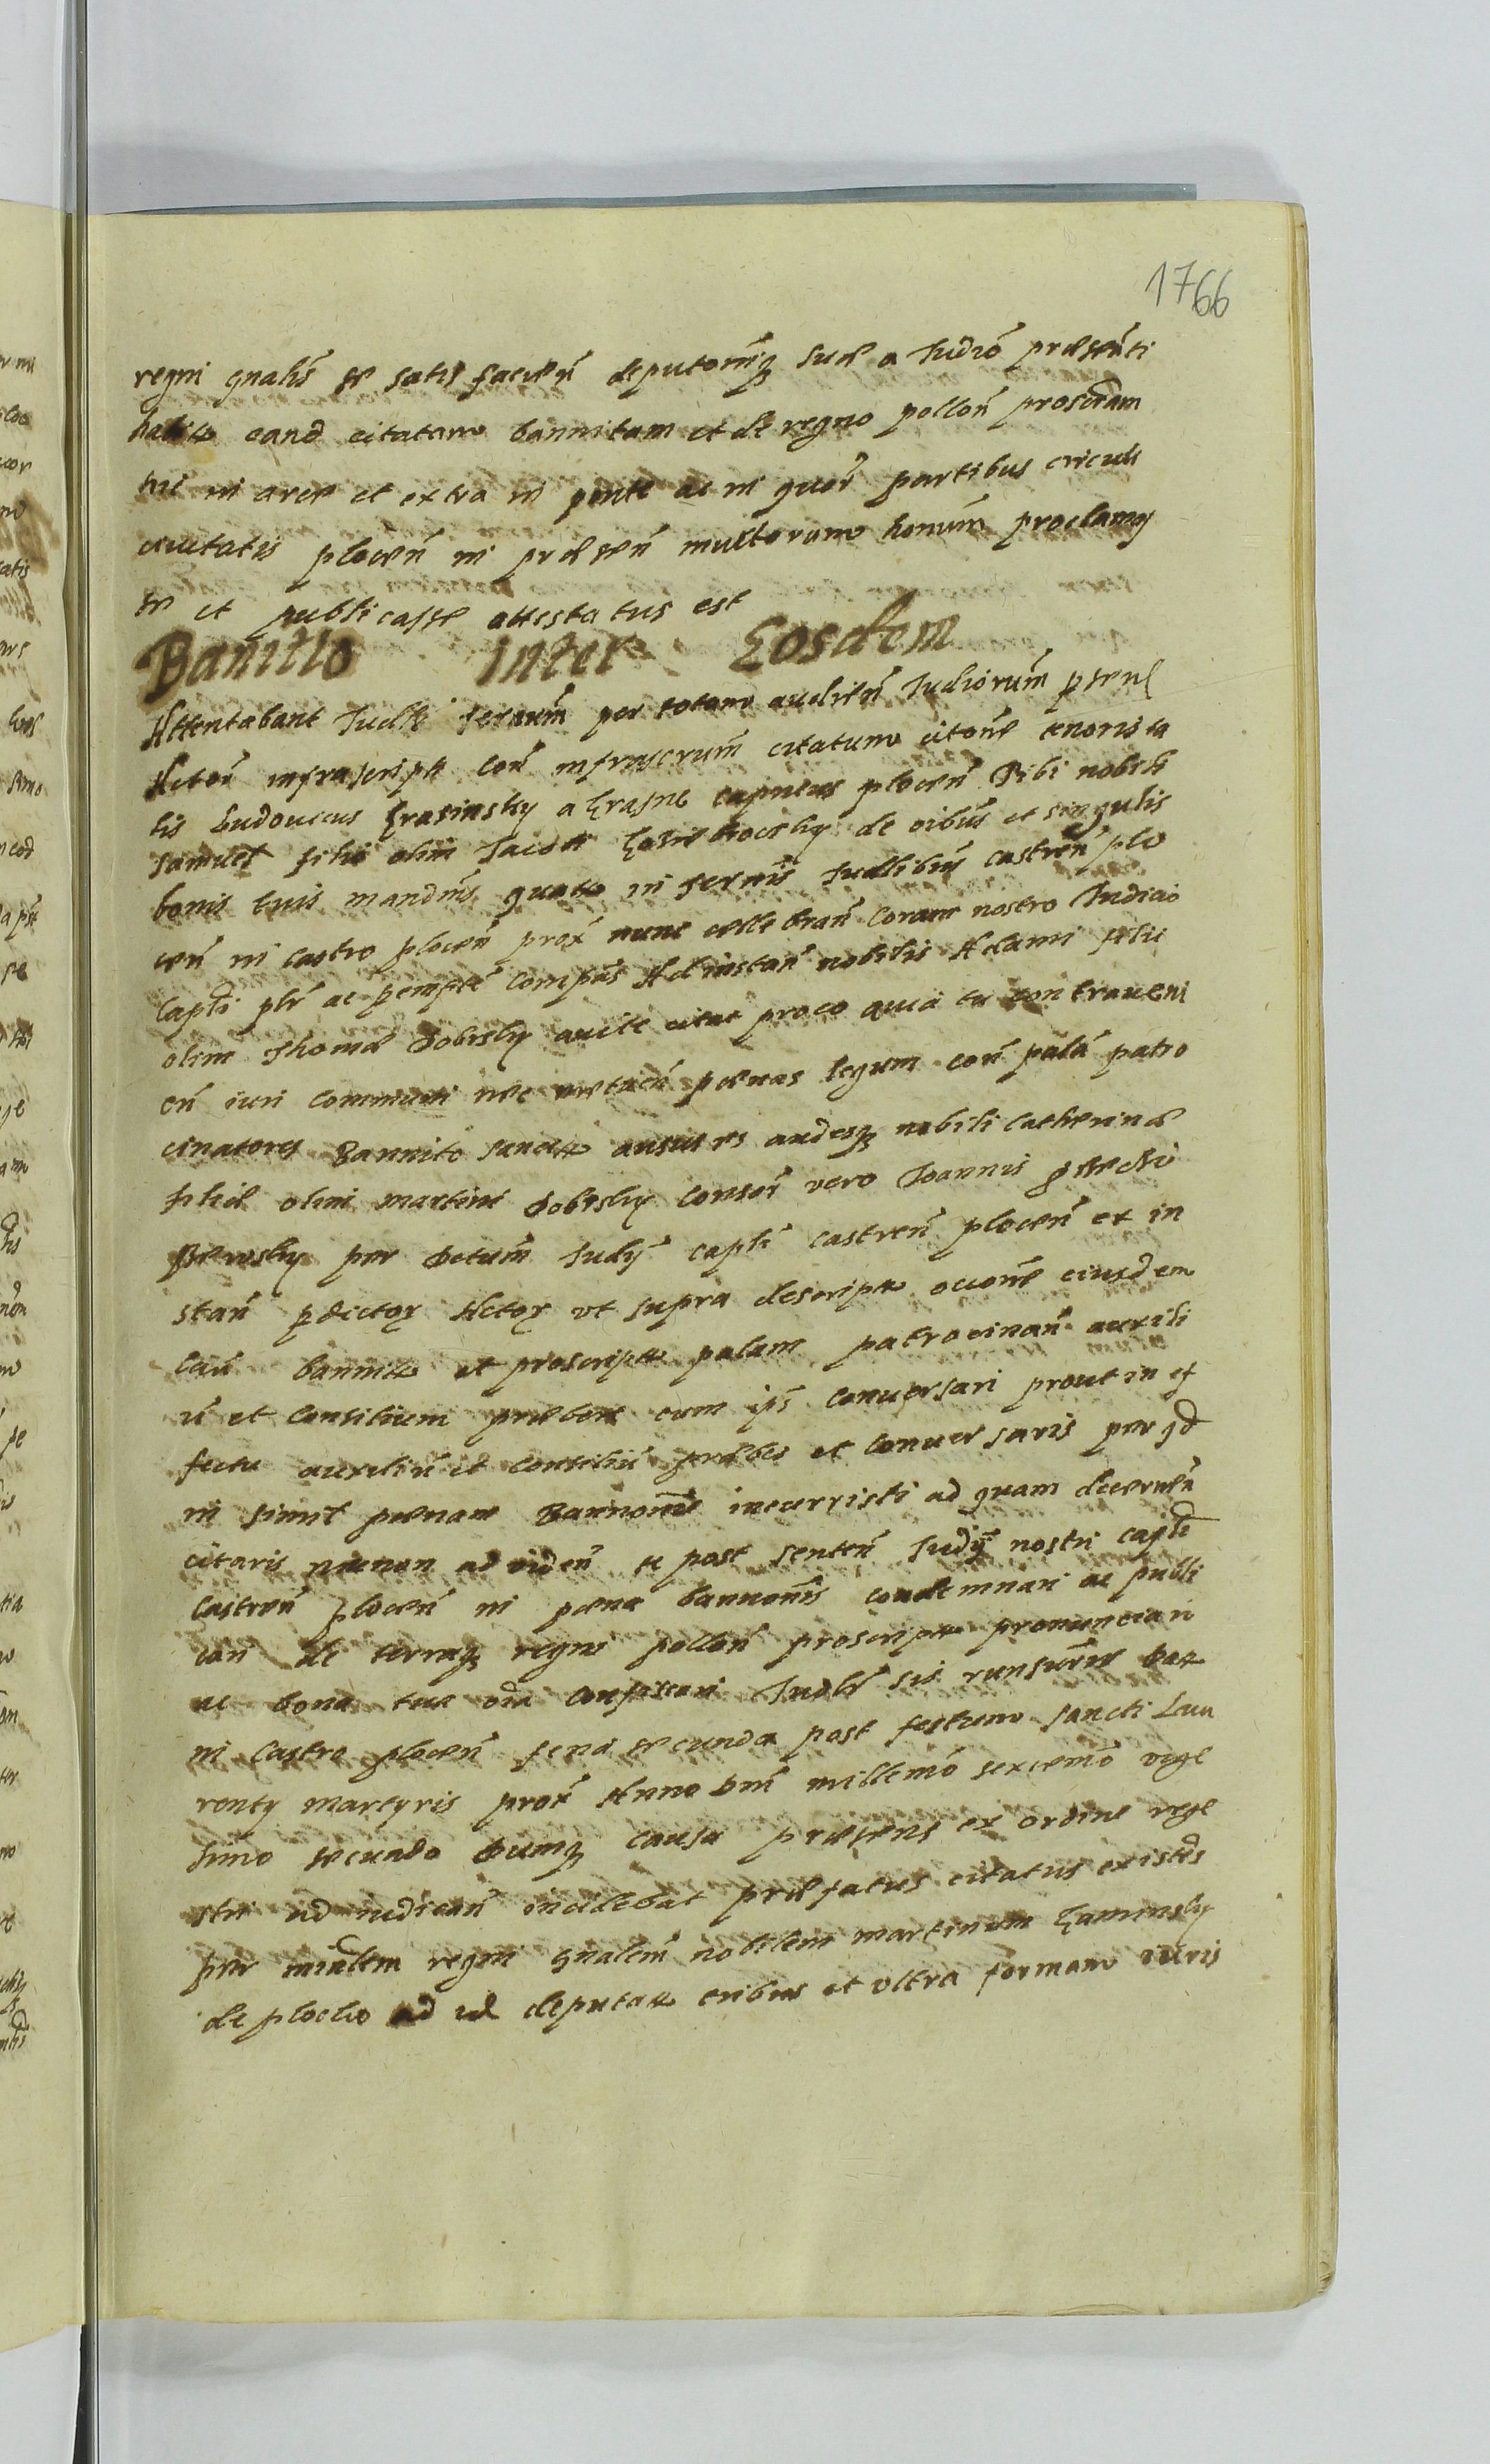 1766
regni gnalis se satis facien deputoniq suæ a Iudio præsenti
habita eand citatam bannitam et de regno pollon proscram
hic in arce et extra in ponte ac in quor partibus criculi
ciuitatis plocen in præsen multorum honum proclamas
se et publicasse attestatus est
Banitio Inter Eosdem
Attentabant Iudlr serum per totam audien Iudiorum
Actor infrascripta con infrascrum citatum citone tenoris ta
lis Ludouicus Krasinsky a Krasne capneus plocen Tibi nobili
Samuel filio olim Iacobi de oibus et singulis
bonis tuis mandmus quatt in sernis Iudlibus castren plo
cen in castro plocen prox nunc celebran Coram nostro Iudicio
Capli plr ac pempte compas Ad instan nobilis Adami filii
olim Thomæ Sobisky auite citat pro eo quia tu contraueni
en iuri communi nec metuen pænas legum con palā patro
cinatores Bannito sancita ausus es audesq nobili Catherinæ
filiæ olim Martini Sobisky consor vero Ioannis
per Decrum Iudy capli castren plocen ex in
stan pdictor Actor vt supra descripta occone eiusdem
cau bannita et proscripta palam patrocinan auxili
ū et consilium præbere cum ips conuersari prout in ef
fectu auxiliū et consiliū præbes et conuersaris per qd
in simil pænam Bannonis incurristi ad quam decernen
citaris necnon ad viden te post senten Iudy nostri capli
castren plocen in pæna bannonis condemnari ac publi
cari de terrisq regni pollon proscripta pronunciari
ac bona tua oia confiscari Iudlr sis runsurus Dat
in Castro plocen feria secunda post festum sancti Lau
renty martyris prox Anno Dni millemo sexcemo vige
simo secundo Dumq causa præsens ex ordine rege
stri ad iudican incidebat præfatus citatus existes
per minlem regni gnalem nobilem Martinum Kaminsky
de plocko ad id deputatt tribus et vltra formam iuris